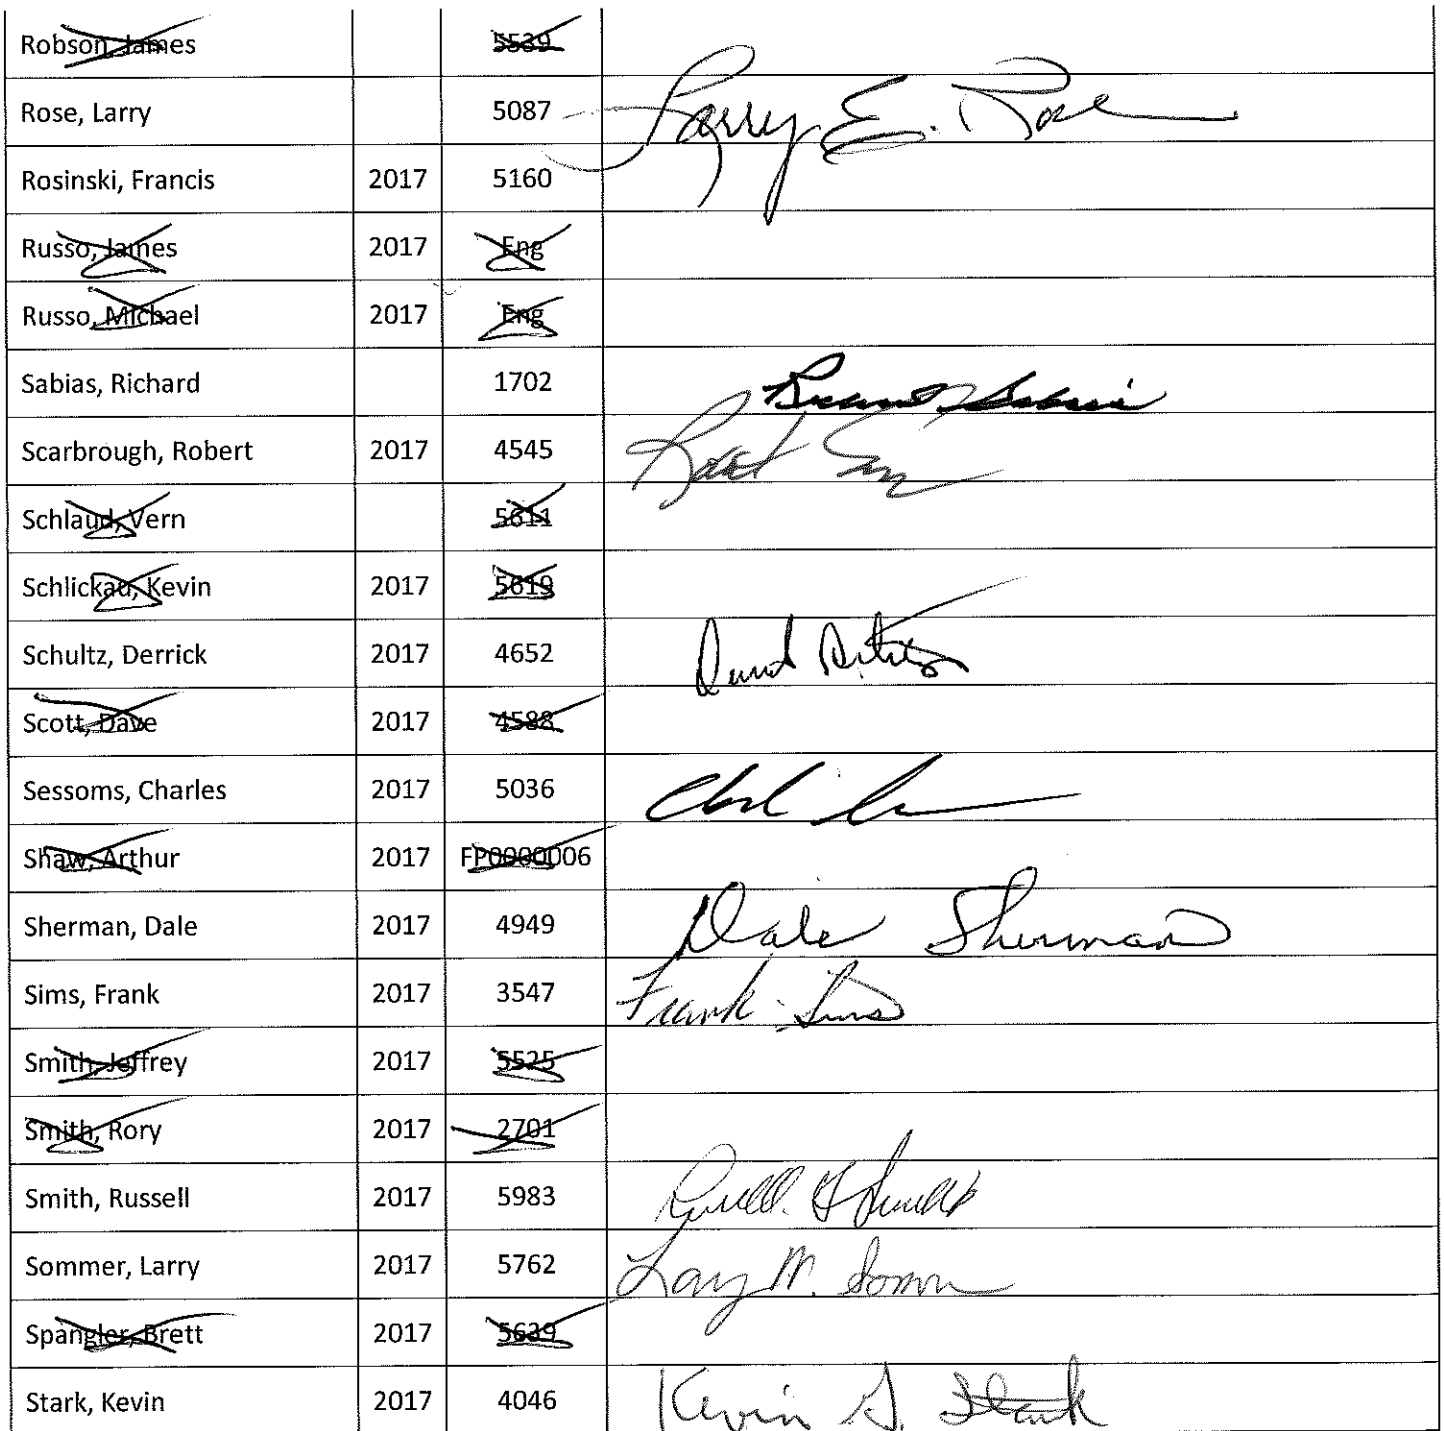 Robson, James 5539
Rose, Larry 5087 Larry E. Rose
Rosinski, Francis 2017 5160
Russo, James 2017 Eng
Russo, Michael 2017 Eng
Sabias, Richard 1702 Richard Sabias
Scarbrough, Robert 2017 4545 Robert
Schlaud, Vern 5611
Schlickau, Kevin 2017 5619
Schultz, Derrick 2017 4652
Scott, Dave 2017 4588
Sessoms, Charles 2017 5036
Shaw, Arthur 2017 FP0000006
Sherman, Dale 2017 4949 Dale Sherman
Sims, Frank 2017 3547 Frank Sims
Smith, Jeffrey 2017 5525
Smith, Rory 2017 2701
Smith, Russell 2017 5983
Sommer, Larry 2017 5762 Larry M. Sommer
Spangler, Brett 2017 5639
Stark, Kevin 2017 4046 Kevin G. Stark